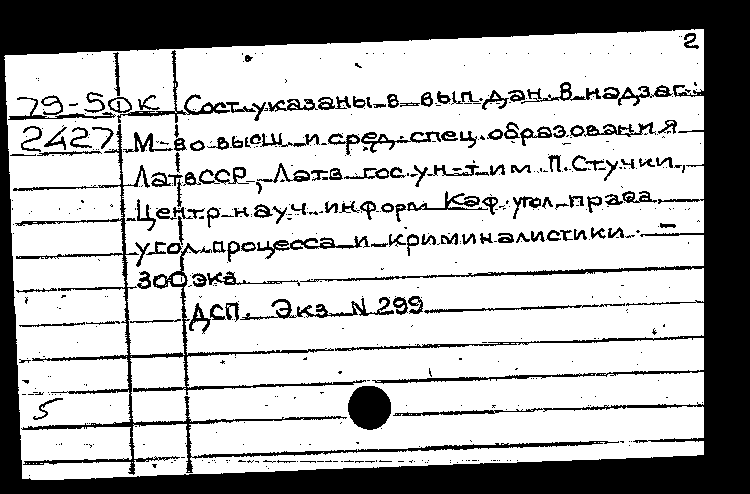 2
79-5ДК Сост. указаны в вып. дан. В надзаг.:
2427 М-во высш. и сред. спец. образования
ЛатвССР, Латв. гос. ун-т им. П. Стучки,
Центр науч. информ. Каф. угол. права,
угол. процесса и криминалистики. –
300 экз.
ДСП. Экз N 299
5